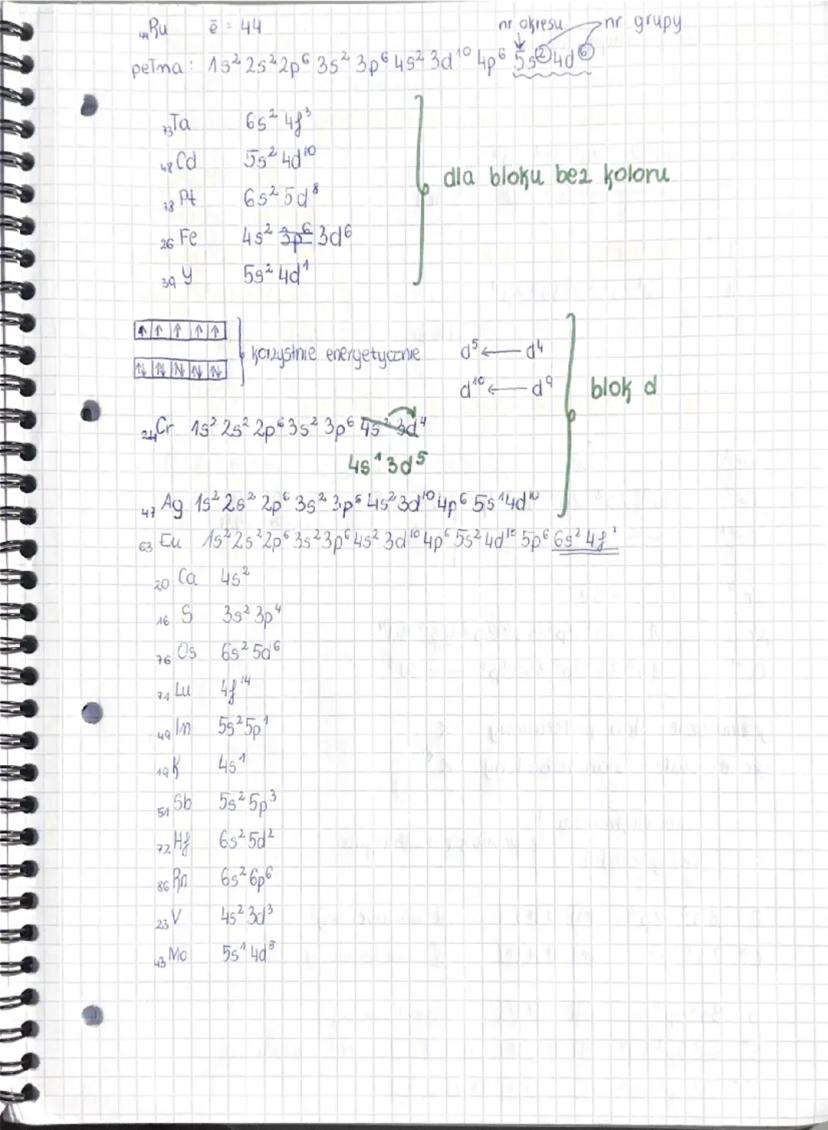 ₄₄Ru ē = 44 nr okresu nr grupy
pełna: 1s² 2s² 2p⁶ 3s² 3p⁶ 4s² 3d¹⁰ 4p⁶ 5s² 4d⁶
₇₃Ta 6s² 4f³
₄₈Cd 5s² 4d¹⁰
₇₈Pt 6s² 5d⁸
dla bloku bez koloru
₂₆Fe 4s² 3p⁶ 3d⁶
₃₉Y 5s² 4d¹
korzystnie energetycznie d⁵ ← d⁴
d¹⁰ ← d⁹ blok d
₂₄Cr 1s² 2s² 2p⁶ 3s² 3p⁶ 4s² 3d⁴
4s¹ 3d⁵
₄₇Ag 1s² 2s² 2p⁶ 3s² 3p⁶ 4s² 3d¹⁰ 4p⁶ 5s¹ 4d¹⁰
₆₃Eu 1s² 2s² 2p⁶ 3s² 3p⁶ 4s² 3d¹⁰ 4p⁶ 5s² 4d¹⁰ 5p⁶ 6s² 4f⁷
₂₀Ca 4s²
₁₆S 3s² 3p⁴
₇₆Os 6s² 5d⁶
₇₁Lu 4f¹⁴
₄₉In 5s² 5p¹
₁₉K 4s¹
₅₁Sb 5s² 5p³
₇₂Hf 6s² 5d²
₈₆Rn 6s² 6p⁶
₂₃V 4s² 3d³
₄₃Mo 5s¹ 4d⁵